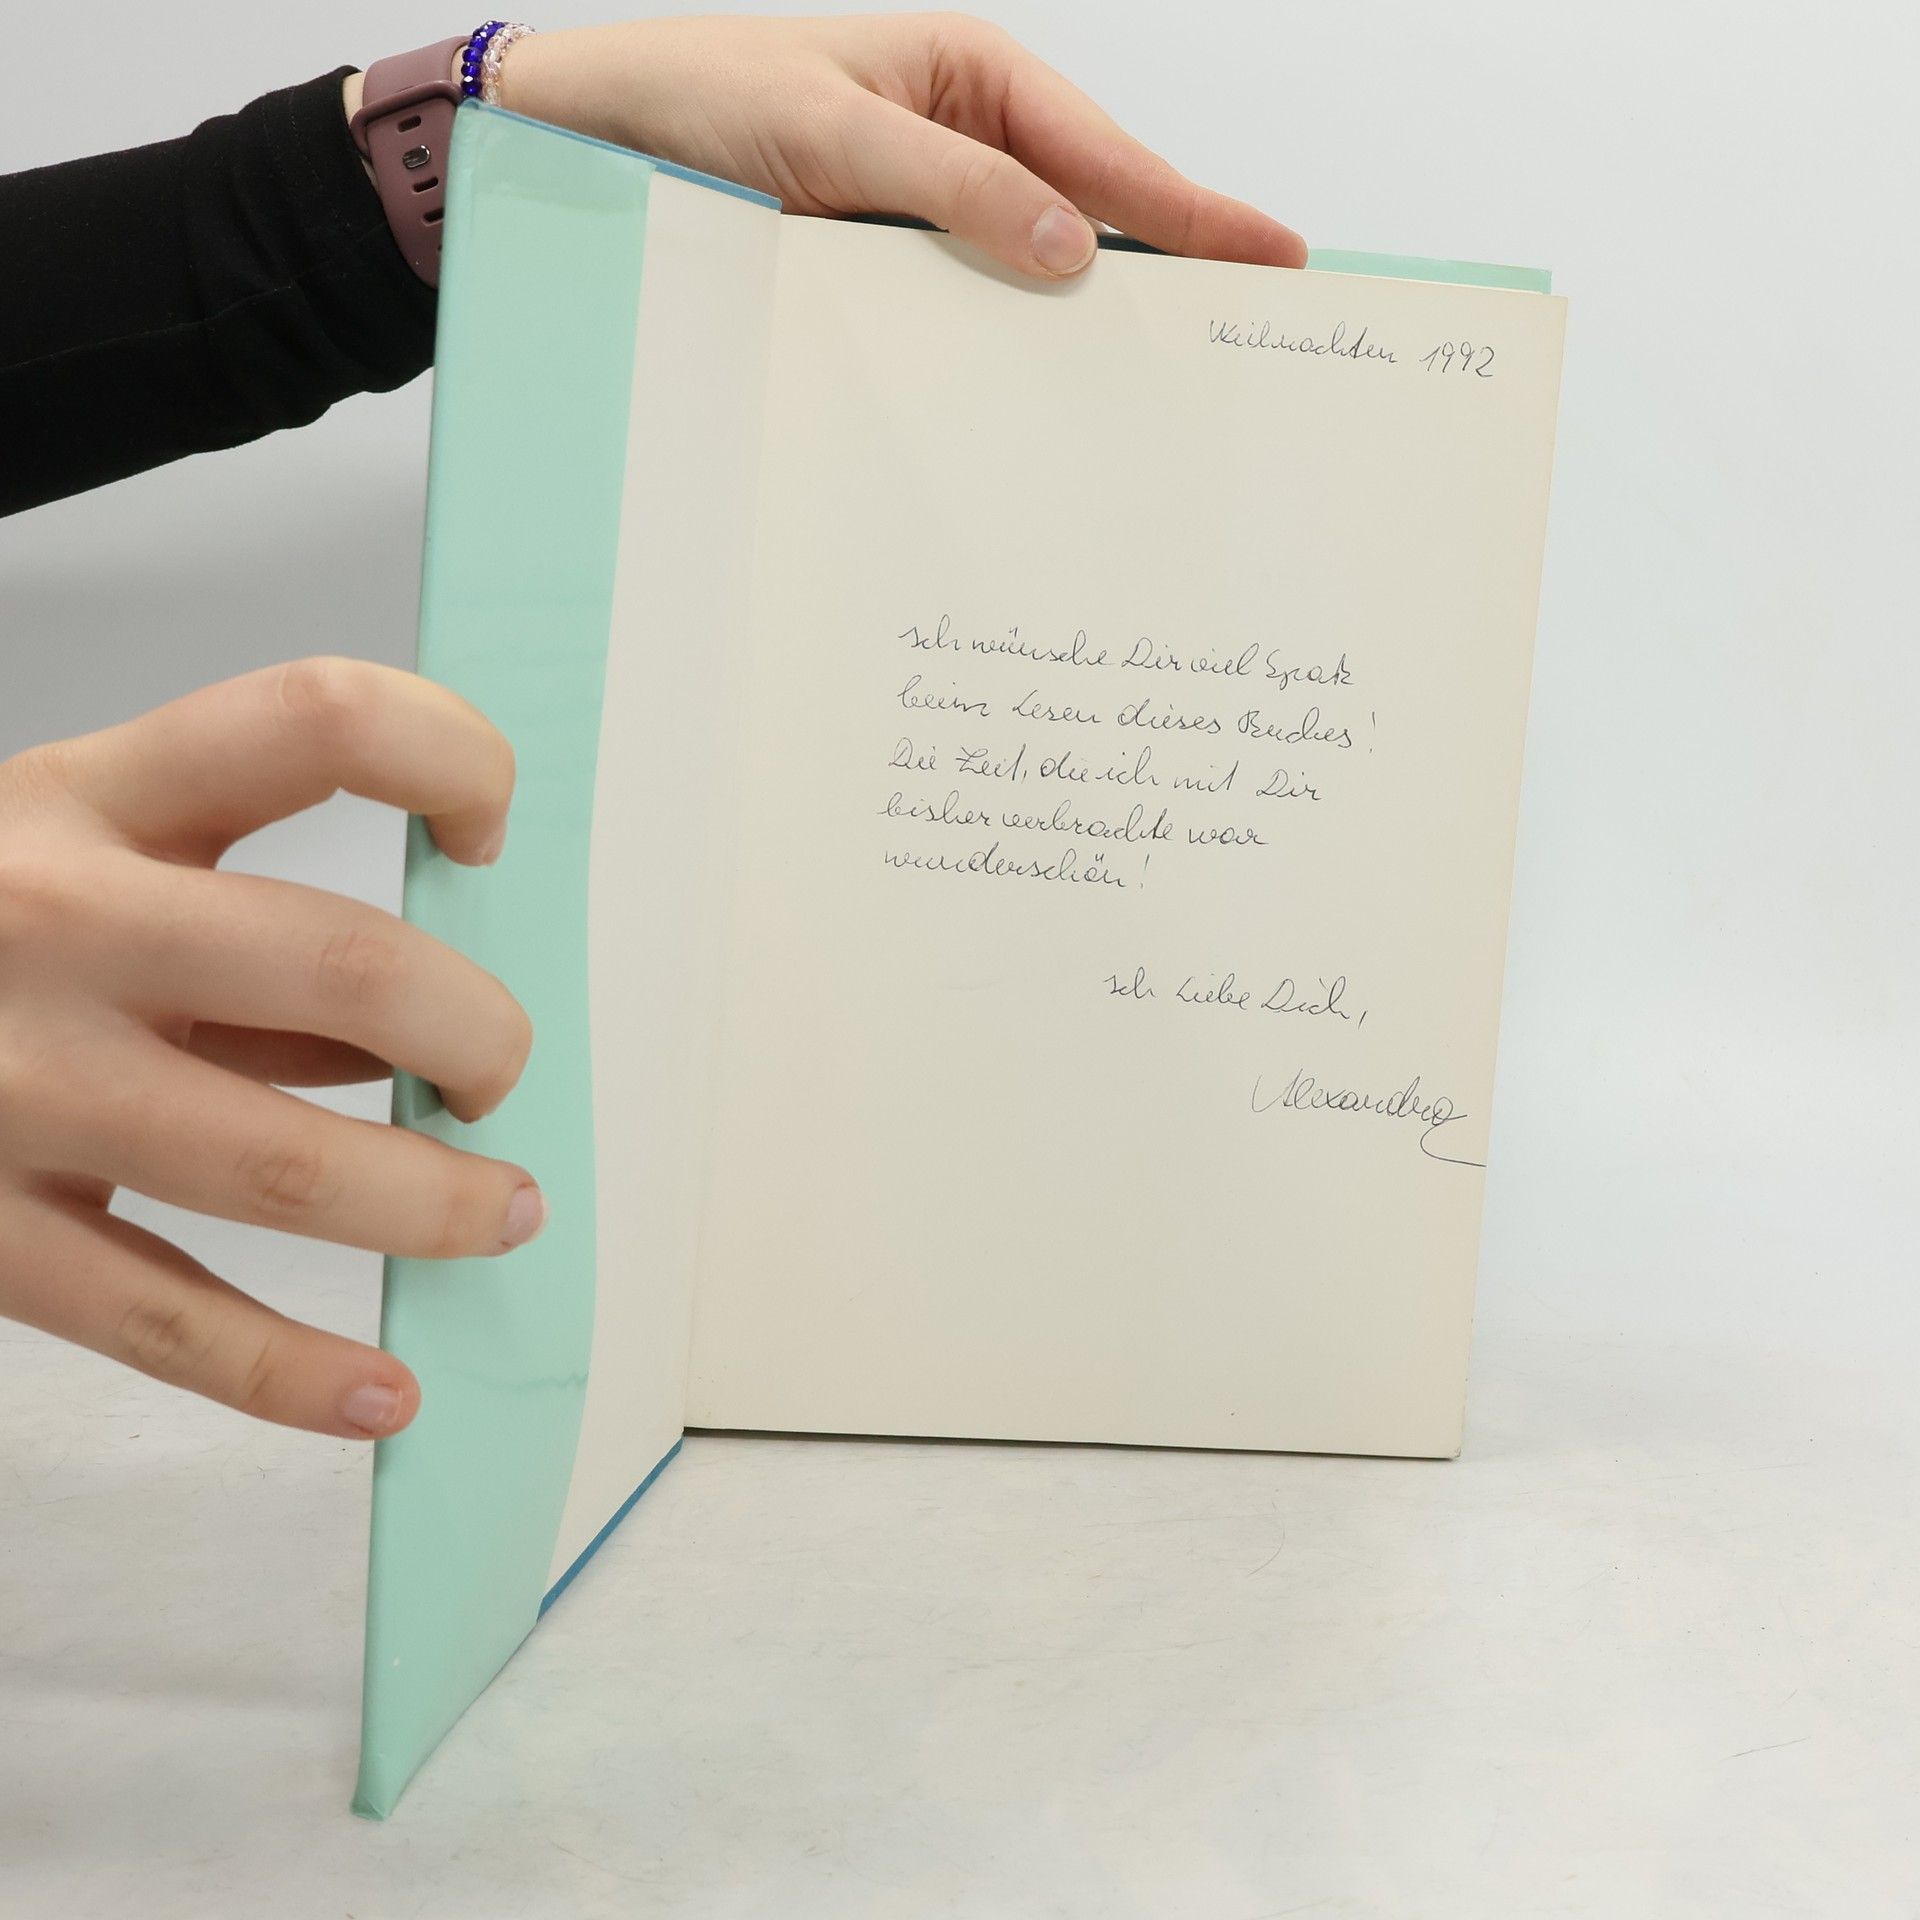 Weihnachten 1992
Ich wünsche Dir viel Spaß
beim Lesen dieses Buches!
Die Zeit, die ich mit Dir
bisher verbrachte war
wunderschön!
Ich Liebe Dich,
Alexandra